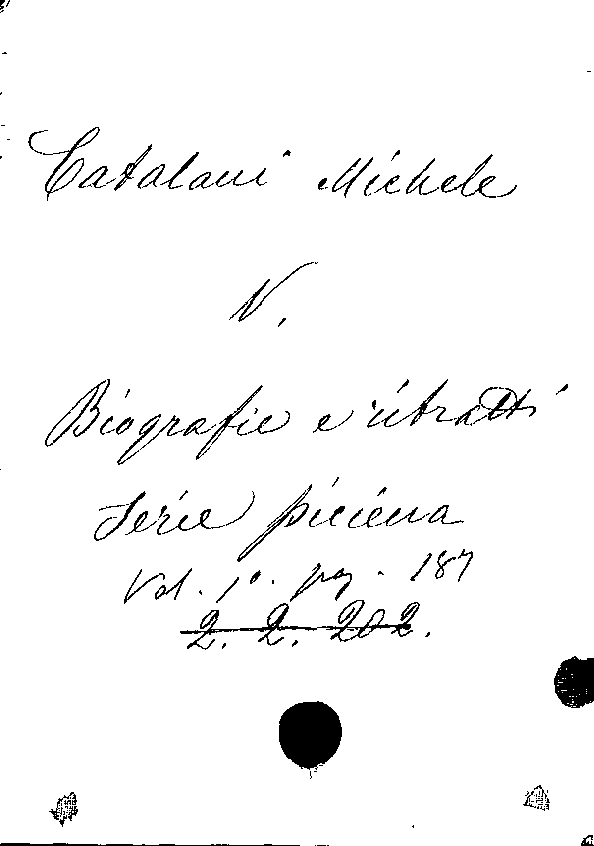 Catalani Michele
V.
Biografie e ritratti
Serie picena
Vol. 1º. pag. 187
2. 2. 202.